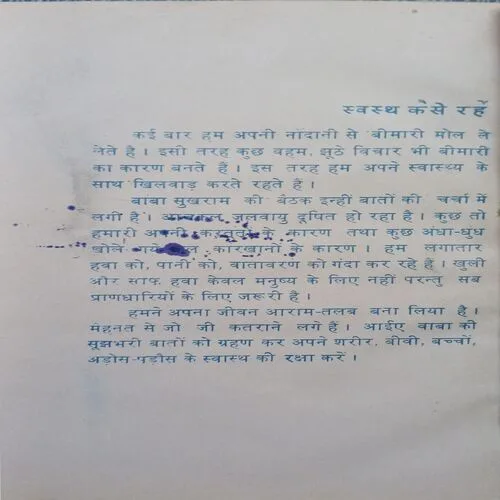 स्वस्थ कैसे रहें
कई बार हम अपनी नांदानी से बीमारी मोल ले
लेते है । इसी तरह कुछ वहम, झूठे विचार भी बीमारी
का कारण बनते हैं । इस तरह हम अपने स्वास्थ्य के
साथ खिलवाड़ करते रहते हैं ।
बाबा सुखराम की बैठक इन्हीं बातों की चर्चा में
लगी है । जलवायु दूषित हो रहा है । कुछ तो
हमारी अपनी करतूतों के कारण तथा कुछ अंधा-धुंध
खोले गये कारखानों के कारण । हम लगातार
हवा को, पानी को, वातावरण को गंदा कर रहे हैं । खुली
और साफ हवा केवल मनुष्य के लिए नहीं परन्तु सब
प्राणधारियों के लिए जरूरी है ।
हमने अपना जीवन आराम-तलब बना लिया है ।
मेहनत से जो जी कतराने लगे हैं । आईए बाबा की
सूझभरी बातों को ग्रहण कर अपने शरीर, बीवी, बच्चों,
अड़ोस-पड़ौस के स्वास्थ की रक्षा करें ।